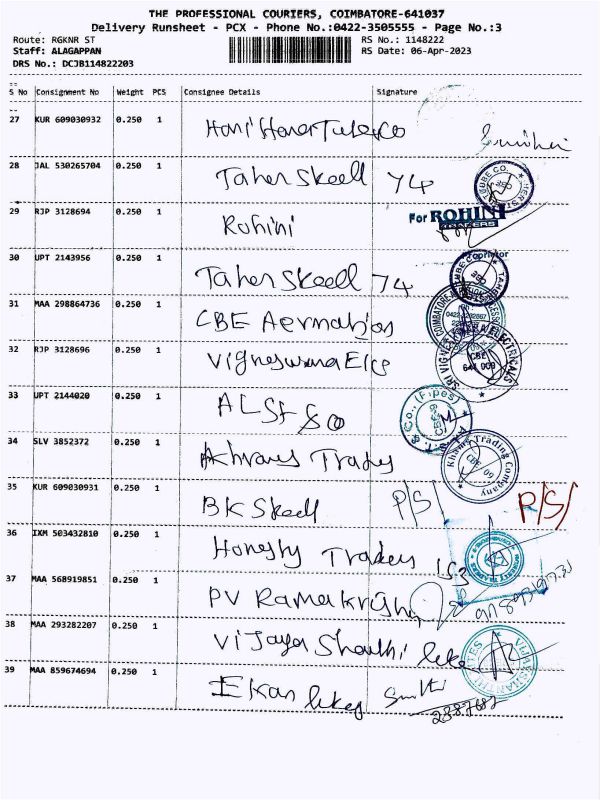 THE PROFESSIONAL COURIERS, COIMBATORE-641037
Delivery Runsheet - PCX - Phone No.:0422-3505555 - Page No.:3
Route: RGKNR ST RS No.: 1148222
Staff: ALAGAPPAN RS Date: 06-Apr-2023
DRS No.: DCJB114822203
S No Consignment No Weight PCS Consignee Details Signature
27 KUR 609030932 0.250 1
28 JAL 530265704 0.250 1 Taher Skeell 74
29 RJP 3128694 0.250 1 Rohini For ROHINI
30 UPT 2143956 0.250 1 Taher Skeell 74
31 MAA 298864736 0.250 1 CBE
32 RJP 3128696 0.250 1 SRI VIGNES ELECTRICALS CBE
33 UPT 2144020 0.250 1 ALSt & Co & Co., (Pipes)
34 SLV 3852372 0.250 1 Trading Company
35 KUR 609030931 0.250 1 BK Skeell P/S/ P/S/
36 IXM 503432810 0.250 1 Honesty Traders 153
37 MAA 568919851 0.250 1 PV Ramakrishn
38 MAA 293282207 0.250 1 Vijaya Shanthi
39 MAA 859674694 0.250 1 Ekan